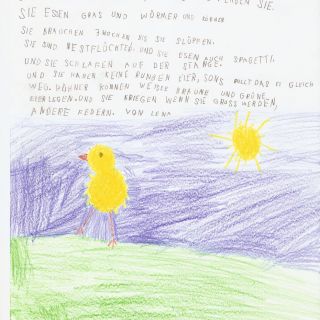 SIE.
SIE ESSEN GRAS UND WÜRMER UND KÖRNER
SIE BRAUCHEN 3 WOCHEN BIS SIE SLÜPFEN.
SIE SIND NESTFLÜCHTER. UND SIE ESEN AUCH SPAGETTI.
UND SIE SCHLAFEN AUF DER STANGE.
UND SIE HABEN KEINE RUNDEN EIER, SONS ROLLT DAS EI GLEICH
WEG. HÜHNER KÖNNEN WEIẞE BRAUNE UND GRÜNE
EIER LEGEN. UND SIE KRIEGEN WENN SIE GROSS WERDEN,
ANDERE FEDERN. VON LENA